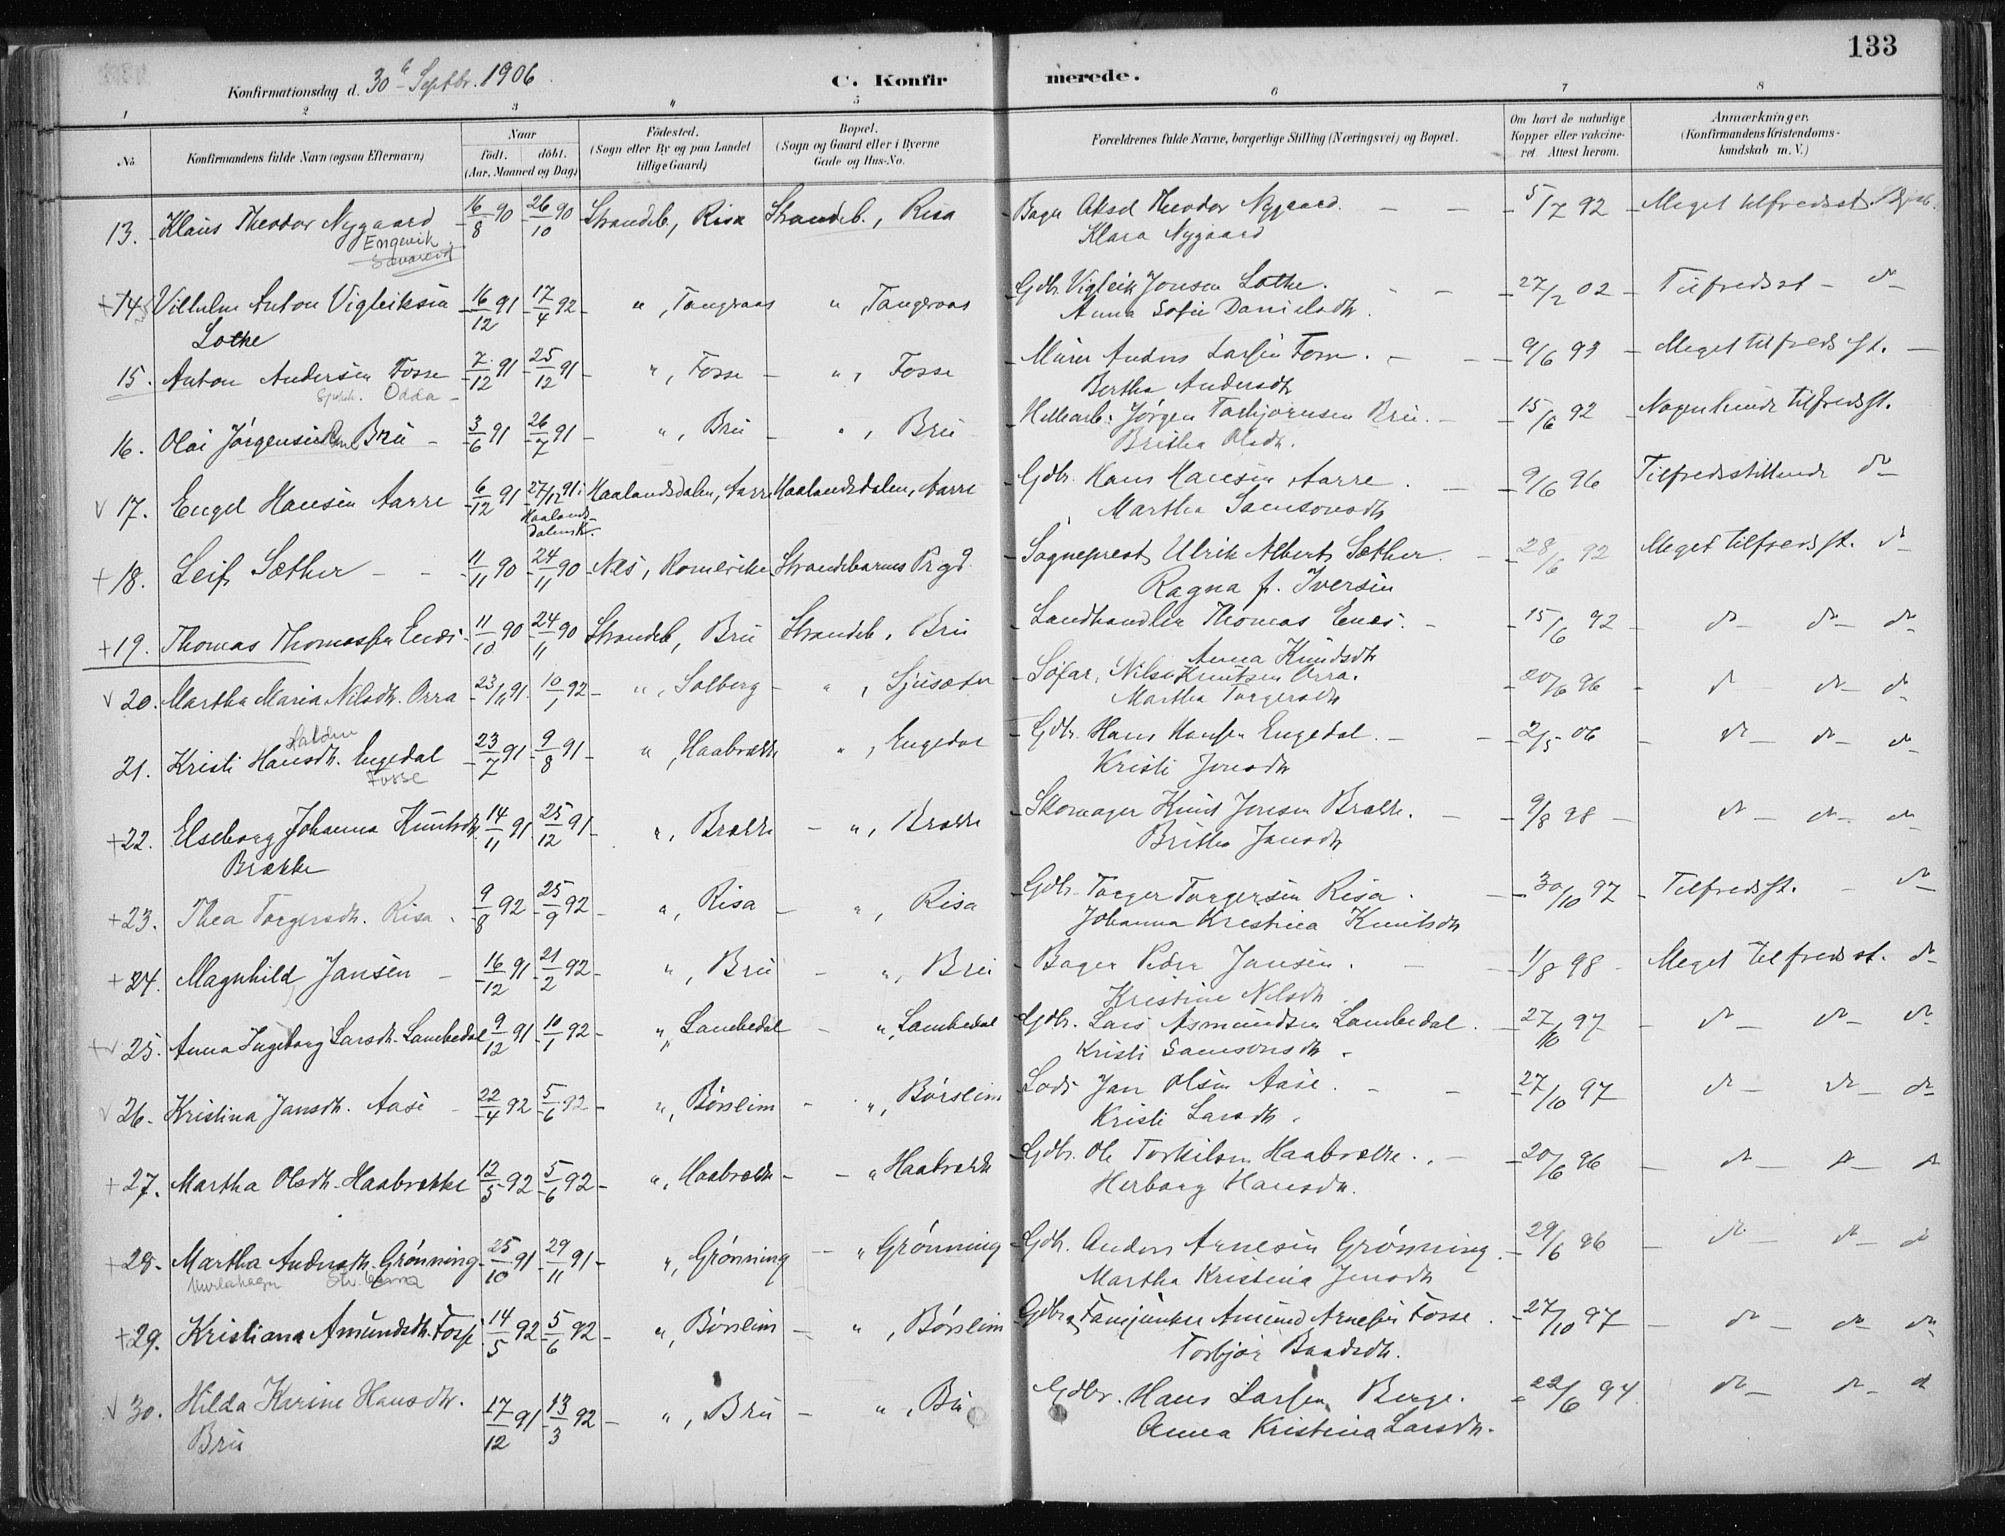 133
Konfirmationsdag d. 30te Septbr. 1906
C. Konfirmerede.
1 2 3 4 5 6 7 8
No
Konfirmandens fulde Navn (ogsaa Efternavn)
Naar
födt. döbt.
(Aar, Maaned og Dag)
Födested.
(Sogn eller By og paa Landet tillige Gaard)
Bopæl.
(Sogn og Gaard eller i Byerne Gade og Hus-No.
Forældrenes fulde Navne, borgerlige Stilling (Næringsvei) og Bopæl.
Om havt de naturlige Kopper eller vaccineret. Attest herom.
Anmærkninger.
(Konfirmandens Kristendomskundskab m. V.)
13. Klaus Theodor Nygaard 16/8 90 26/10 90 Strandeb., Risa Strandeb., Risa Bager Aksel Theodor Nygaard. 5/7 92 Meget tilfredsst.
Engevik
Klara Nygaard
+14 Vilhelm Anton Vigleiksen 16/12 91 17/4 92 " , Tangeraas " Tangeraas Gdbr. Vigleik Jonsen Lothe. 27/2 02 Tilfredsst - do
Lothe
Anna Sofie Danielsdtr.
15. Anton Andersen Fosse 7/12 91 25/12 91 " , Fosse " , Fosse Murer Anders Larsen Fosse. 9/6 93 Meget tilfredsst.
Odda
Bertha Andersdtr
16. Olai Jørgensen Bru 3/6 91 26/7 91 " , Bru " , Bru Jørgen Torbjørnsen Bru. 15/6 92 Nogenlunde tilfredsst.
Britha Olsdtr.
v 17. Engel Hansen Aarre 6/12 91 27/12 91 i Haalandsdalen, Aarre Haalandsdalen, Aarre Gdbr. Hans Hansen Aarre. 9/6 96 Tilfredsstillende do
Haalandsdalens K.
Martha Samsonsdtr
+ 18. Leif Sæther 11/11 90 24/11 90 Nes, Romerike Strandebarms Prgd. Sogneprest Ulrik Albert Sæther. 28/6 92 Meget tilfredsst. do
Ragna f. Iversen
+19. Thomas Thomassen Enes 11/10 90 24/11 90 Strandeb, Bru Strandeb. Bru Landhandler Thomas Enes. 15/6 92 do do do
Anna Knudsdtr
v 20. Martha Maria Nilsdtr. Orra 23/11 91 10/1 92 " , Solberg " , Ljusæter Nils Knutsen Orra. 20/6 96 do do do
Martha Torgersdtr
21. Kristi Hansdtr. Engedal 23/7 91 9/8 91 " , Haabrække " , Engedal Gdbr. Hans Hansen Engedal. 2/5 06 do do do
Fosse
Kristi Jonsdtr
+22. Elseborg Johanna Knutsdtr. 14/11 91 25/12 91 " , Brække " , Brække Skomager Knut Jonsen Brække. 9/8 98 do do do
Brække
Britha Jansdtr
+23. Thea Torgersdtr. Risa. 9/8 92 25/9 92 " , Risa " , Risa Gdbr. Torger Torgersen Risa. 30/10 97 Tilfredsst. do
Johanna Kristina Knutsdtr
+24. Magnhild Jansen 16/12 91 21/2 92 " , Bru " , Bru Bager Peder Jansen. 1/8 98 Meget tilfredsst. do
Kristine Nilsdtr
+v 25. Anna Ingeborg Larsdtr. Lambedal 9/12 91 10/1 92 " , Lambedal " , Lambedal Gdbr. Lars Asmundsen Lambedal. 27/10 97 do do do
Kristi Samsonsdtr.
v 26. Kristina Jansdtr. Aase 22/4 92 5/6 92 " , Børsleim " , Børsleim Lods Jan Olsen Aase. 27/10 97 do do do
Kristi Larsdtr.
+27. Martha Olsdtr. Haabrække 12/5 92 5/6 92 " , Haabrække " Haabrække Gdbr. Ole Torkilsen Haabrække. 20/6 96 do do do
Herborg Hansdtr.
+28. Martha Andersdtr. Grønning 25/10 91 29/11 91 " , Grønning " Grønning Gdbr. Anders Arnesen Grønning. 29/6 96 do do do
Martha Kristina Jonsdtr
+29. Kristiana Amundsdtr. Fosse 14/5 92 5/6 92 " , Børsleim " , Børsleim Gdbr. & Fanejunker Amund Arnesen Fosse. 27/10 97 do do do
Torbjør Baadsdtr.
v 30. Hilda Karine Hansdtr. 17/12 91 13/3 92 " , Bru " , Bru Gdbr. Hans Larsen Berge. 22/6 94 do do do
Bru
Anna Kristina Larsdtr.